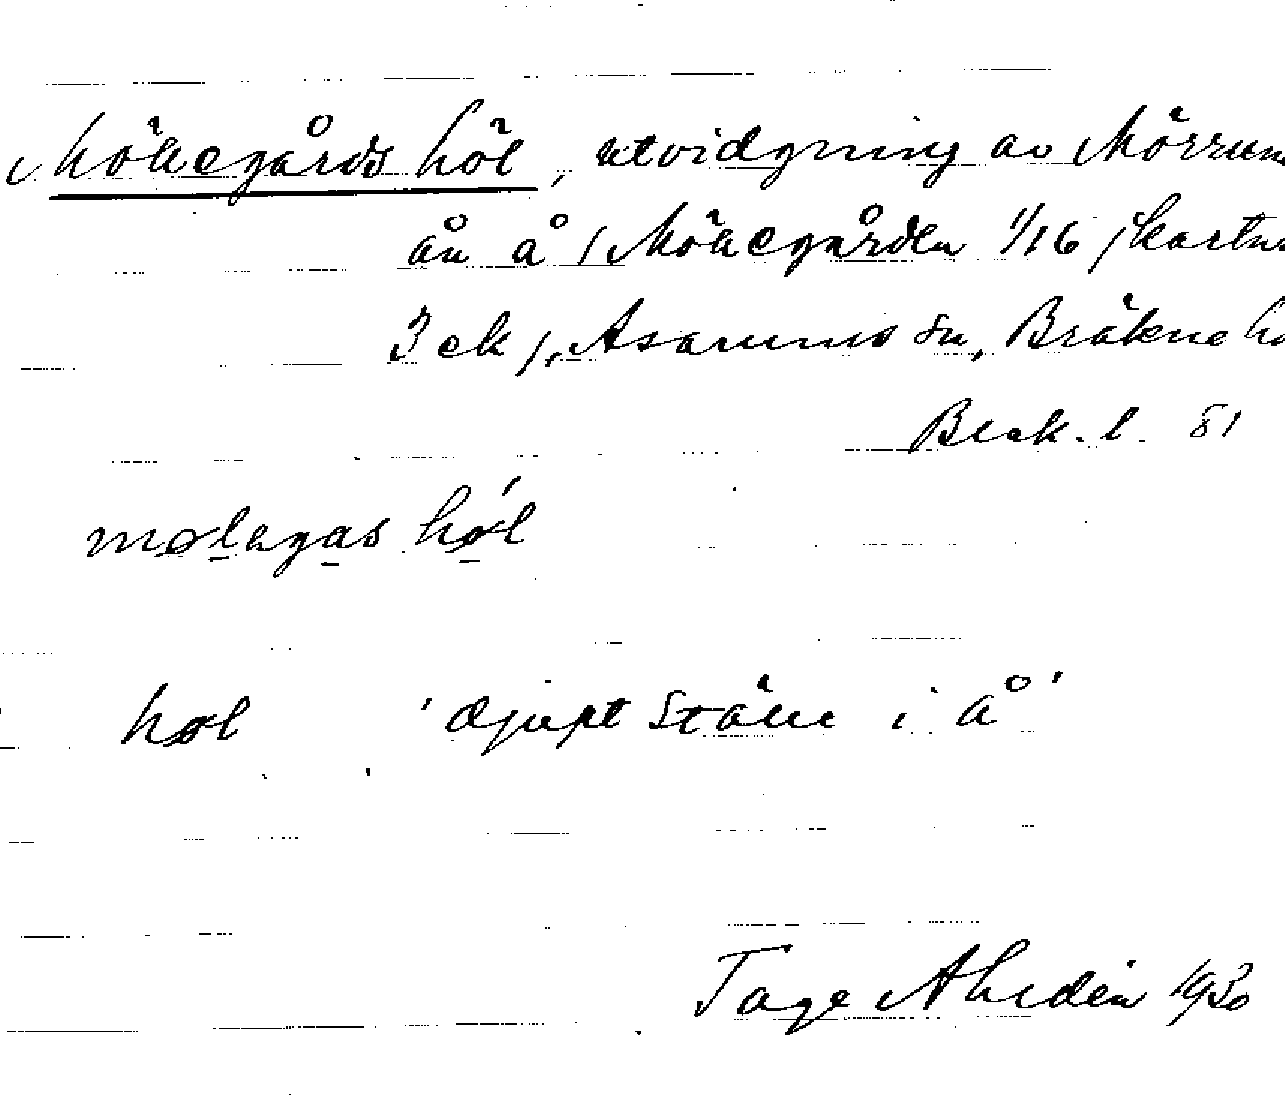 Möllegårds höl, utvidgning av Mörrums
ån å (Möllegården 1/16 (kartan
3 ek), Asarums sn, Bräkne h
Blek. l. 81
mølagas høl
høl 'djupt ställe i å'
Tage Ahldén 1930